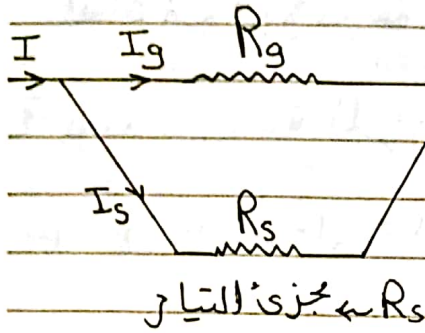 I I_g R_g
I_s R_s
R_s ← مجزئ التيار